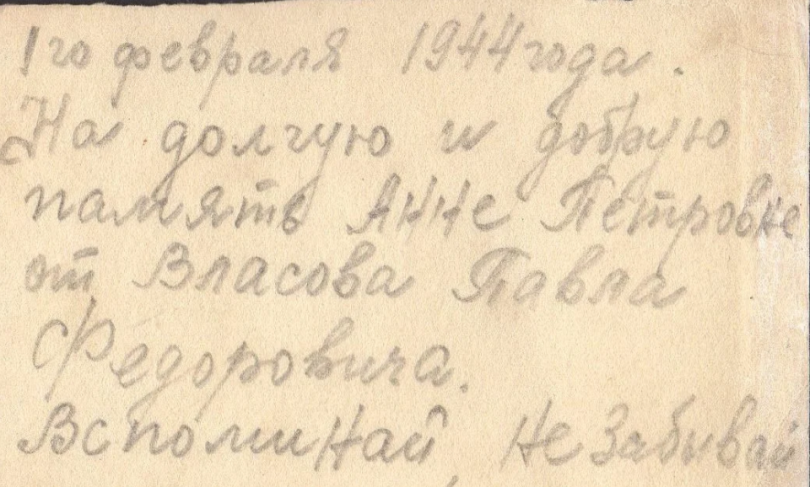 1го февраля 1944 года.
На долгую и добрую
память Анне Петровне
от Власова Павла
Федоровича.
Вспоминай, не забывай